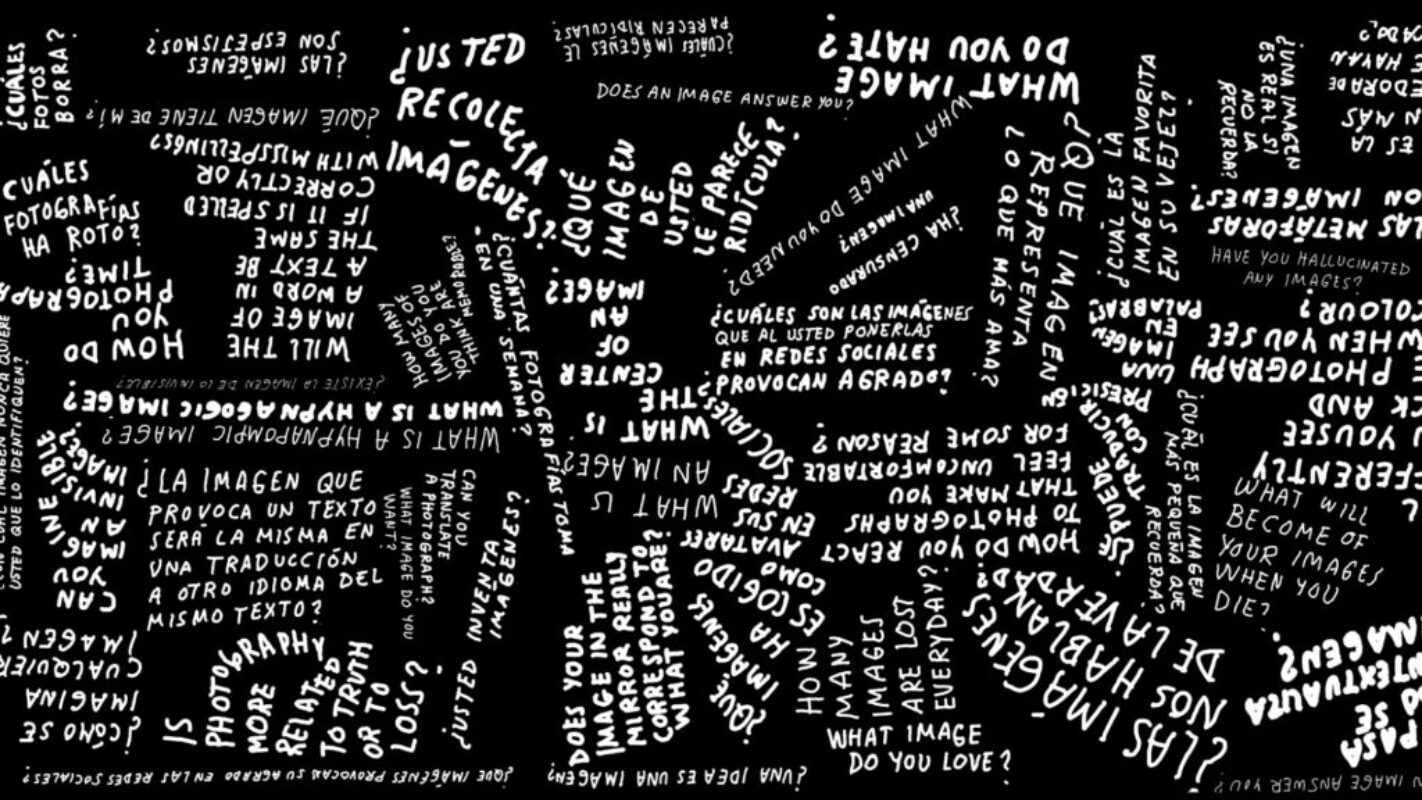 ¿CUÁLES
FOTOS
BORRA?
¿LAS IMÁGENES
SON ESPEJISMOS?
¿QUÉ IMAGEN TIENE DE MI?
¿USTED
RECOLECTA
IMÁGENES?
¿CUÁLES IMÁGENES LE
PARECEN RIDÍCULAS?
DOES AN IMAGE ANSWER YOU?
WHAT IMAGE
DO YOU HATE?
WHAT IMAGE DO YOU NEED?
¿QUÉ
IMAGEN
DE
USTED
LE PARECE
RIDÍCULA?
¿HA CENSURADO
UNA IMAGEN?
¿QUÉ IMAGEN
REPRESENTA
LO QUE MÁS AMA?
¿CUÁL ES LA
IMAGEN FAVORITA
EN SU VEJEZ?
¿UNA IMAGEN
ES REAL SI
NO LA
RECUERDA?
ES LA
MÁS
HAYAN
LAS METÁFORAS
SON IMÁGENES?
HAVE YOU HALLUCINATED
ANY IMAGES?
CUÁLES
FOTOGRAFÍAS
HA ROTO?
HOW DO
YOU
PHOTOGRAPH
TIME?
WILL THE
IMAGE OF
A WORD IN
A TEXT BE
THE SAME
IF IT IS SPELLED
CORRECTLY OR
WITH MISSPELLINGS?
HOW MANY
IMAGES OF
YOU DO YOU
THINK ARE
MEMORABLE?
¿CUÁNTAS FOTOGRAFÍAS TOMA
EN UNA SEMANA?
WHAT IS
THE
CENTER
OF
AN
IMAGE?
¿CUÁLES SON LAS IMÁGENES
QUE AL USTED PONERLAS
EN REDES SOCIALES
PROVOCAN AGRADO?
¿SE PUEDE
TRADUCIR
CON
EN
UNA
IMAGEN
EN
PALABRAS?
PHOTOGRAPH
WHEN YOU SEE
COLOUR?
YOU SEE
AND
¿EXISTE LA IMAGEN DE LO INVISIBLE?
WHAT IS A HYPNAGOGIC IMAGE?
WHAT IS A HYPNAPOMPIC IMAGE?
IMAGEN NUNCA QUIERE
USTED QUE LO IDENTIFIQUEN?
CAN
YOU
IMAGINE
AN
INVISIBLE
IMAGE?
¿LA IMAGEN QUE
PROVOCA UN TEXTO
SERÁ LA MISMA EN
UNA TRADUCCIÓN
A OTRO IDIOMA DEL
MISMO TEXTO?
WHAT IMAGE DO YOU
WANT?
CAN YOU
TRANSLATE
A PHOTOGRAPH?
¿USTED INVENTA
IMÁGENES?
WHAT IS
AN IMAGE?
¿QUÉ
IMÁGENES
HA
ESCOGIDO
COMO
AVATARES
EN SUS
REDES
SOCIALES?
HOW DO YOU REACT
TO PHOTOGRAPHS
THAT MAKE YOU
FEEL UNCOMFORTABLE
FOR SOME REASON?
¿CUÁL ES LA IMAGEN
MÁS PEQUEÑA QUE
RECUERDA?
WHAT WILL
BECOME OF
YOUR IMAGES
WHEN YOU
DIE?
¿CÓMO SE
IMAGINA
CUALQUIER
IMAGEN?
IS
PHOTOGRAPHY
MORE
RELATED
TO TRUTH
OR TO
LOSS?
DOES YOUR
IMAGE IN THE
MIRROR REALLY
CORRESPOND TO
WHAT YOU ARE?
HOW
MANY
IMAGES
ARE LOST
EVERYDAY?
¿LAS IMÁGENES
NOS HABLAN
DE LA VERDAD?
WHAT IMAGE
DO YOU LOVE?
PASA
SE
IMAGEN?
¿QUÉ IMÁGENES PROVOCAN SU AGRADO EN LAS REDES SOCIALES?
¿UNA IDEA ES UNA IMAGEN?
IMAGE ANSWER YOU?